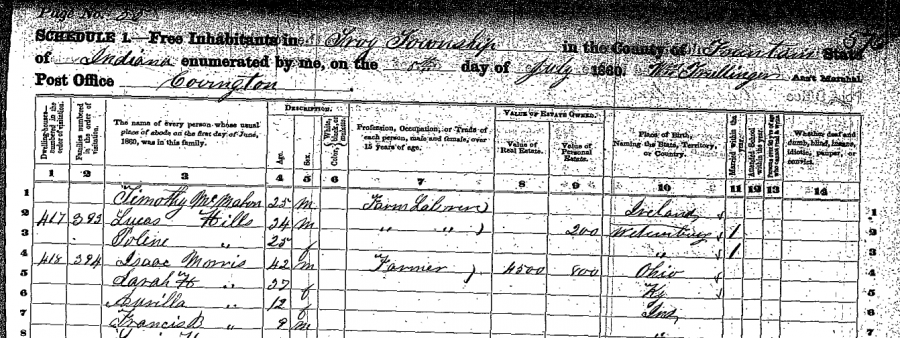 Page No. 52
SCHEDULE 1.—Free Inhabitants in Troy Township in the County of Fountain State
of Indiana enumerated by me, on the day of July 1860. Ass't Marshal
Post Office Covington
Dwelling-houses—numbered in the order of visitation.
Families numbered in the order of visitation.
The name of every person whose usual place of abode on the first day of June, 1860, was in this family.
DESCRIPTION.
Age.
Sex.
Color, White, black, or mulatto.
Profession, Occupation, or Trade of each person, male and female, over 15 years of age.
VALUE OF ESTATE OWNED.
Value of Real Estate.
Value of Personal Estate.
Place of Birth, Naming the State, Territory, or Country.
Married within the year.
Attended School within the year.
Whether deaf and dumb, blind, insane, idiotic, pauper, or convict.
1 2 3 4 5 6 7 8 9 10 11 12 13 14
1 Timothy McMahn 25 m Farm Laborer Ireland 1
2 417 393 Lucas Hills 24 m " " 200 1 2
3 " 25 f 1 3
4 418 394 Isaac Morris 42 m Farmer 4500 800 Ohio 4
5 Sarah " 37 f Ky 5
6 " 12 f Ind 6
7 Francis B " 9 m " 7
8